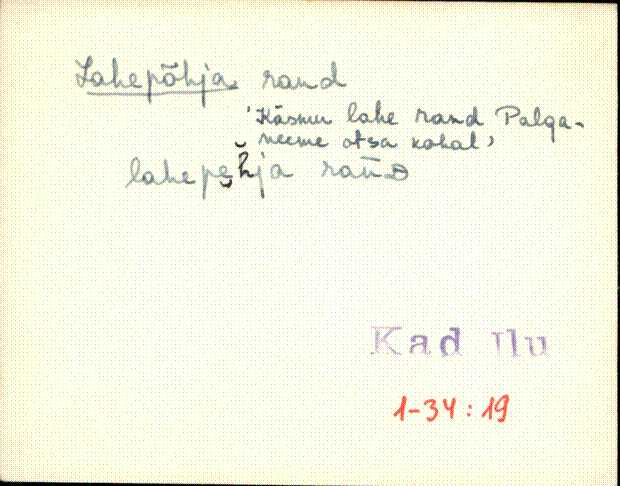 Lahepõhja rand
'Käsmu lahe rand Palga-
neeme otsa kohal'
lahepe̮h̆ja ran̄ᴅ
Kad Ilu
1-34:19